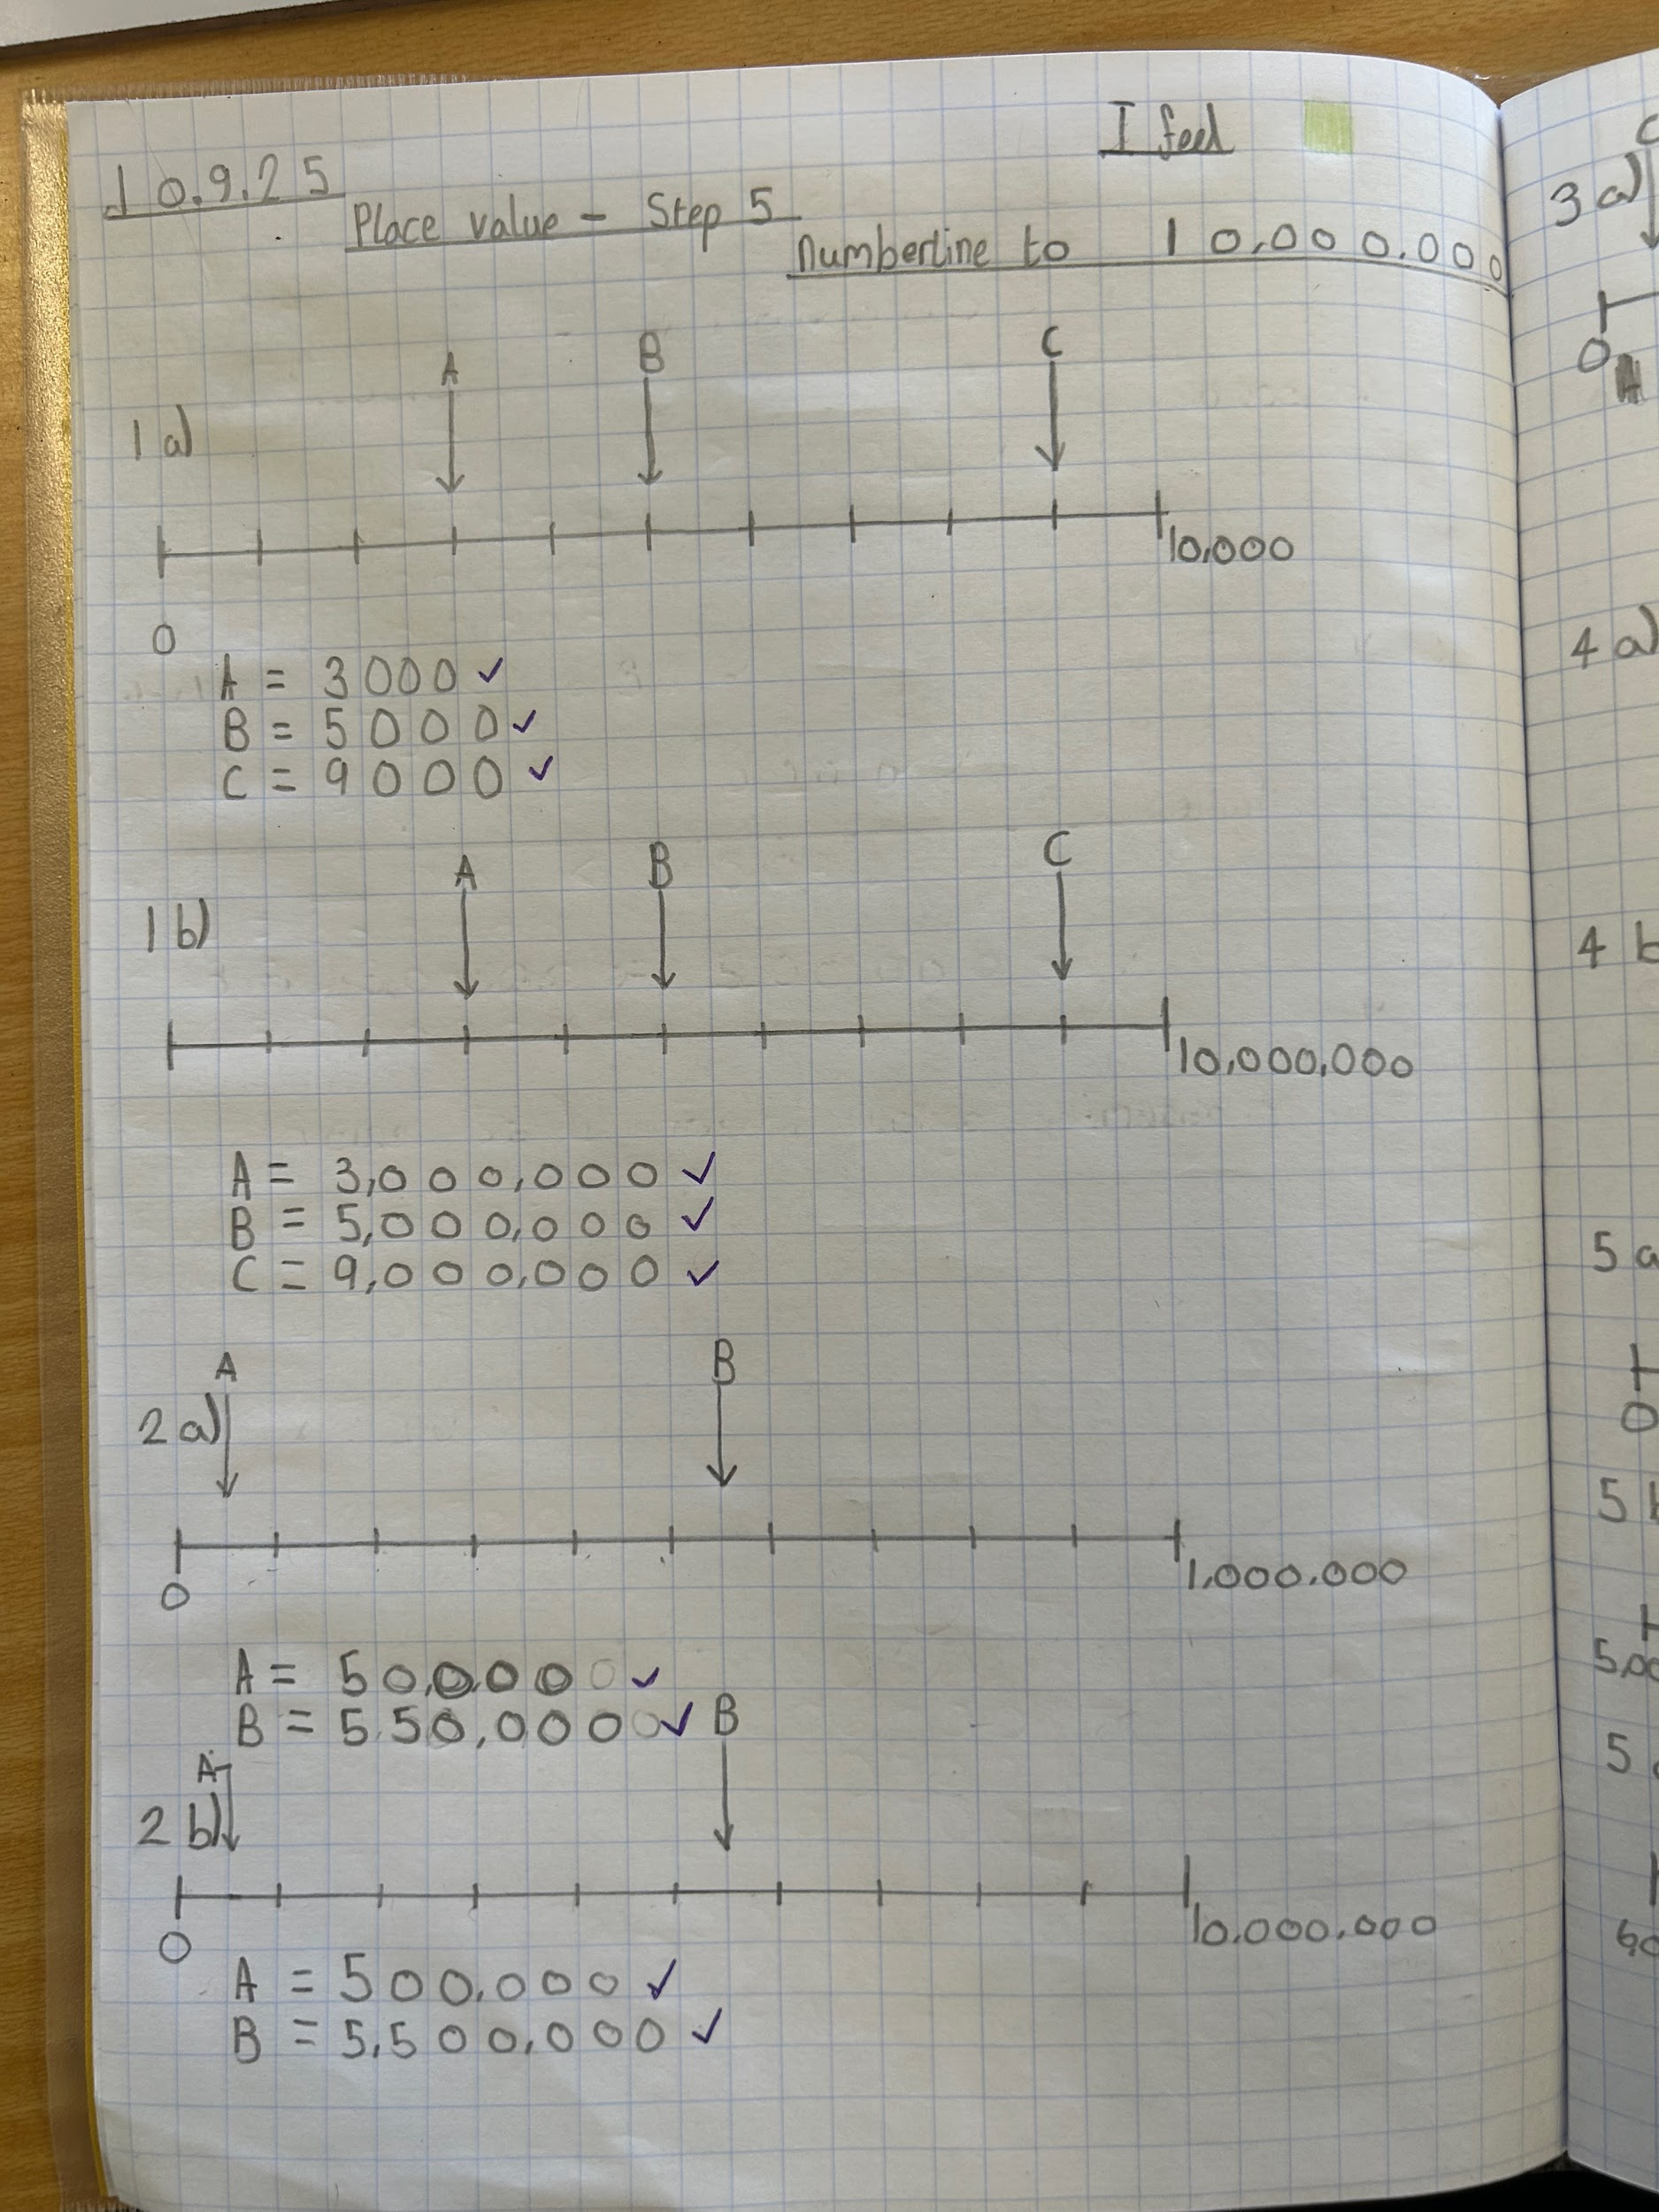 I feel
10.9.25
Place value - Step 5
Numberline to 10,000,000
A B C
1 a)
10,000
0
A = 3000 ✓
B = 5000 ✓
C = 9000 ✓
A B C
1 b)
10,000,000
A = 3,000,000 ✓
B = 5,000,000 ✓
C = 9,000,000 ✓
A B
2 a)
0 1,000,000
A = 50,000 ✓
B = 550,000 ✓
A B
2 b)
0 10,000,000
A = 500,000 ✓
B = 5,500,000 ✓
3 a)
0
4 a)
4 b
5 a
0
5
5